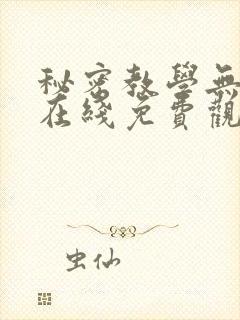 秘密教學無
在綫免費觀
虫仙